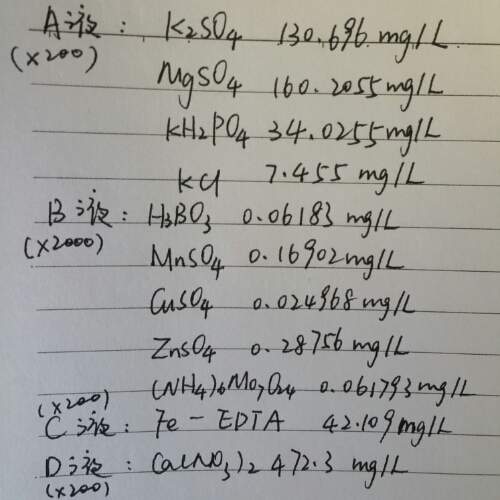 A液: K2SO4 130.696 mg/L
(×200)
MgSO4 160.2055 mg/L
KH2PO4 34.0255 mg/L
KCl 7.455 mg/L
B液: H3BO3 0.06183 mg/L
(×2000)
MnSO4 0.16902 mg/L
CuSO4 0.024968 mg/L
ZnSO4 0.28756 mg/L
(NH4)6Mo7O24 0.061793 mg/L
(×200)
C液: Fe-EDTA 42.109 mg/L
D液: Ca(NO3)2 472.3 mg/L
(×200)